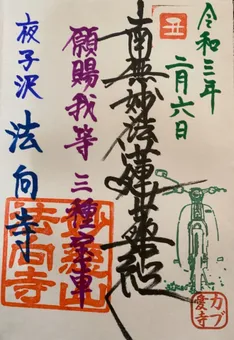 丑
令和三年
二月六日
南無妙法蓮華経
願賜我等 三種宝車
夜子沢 法向寺
法向寺
カブ
愛寺